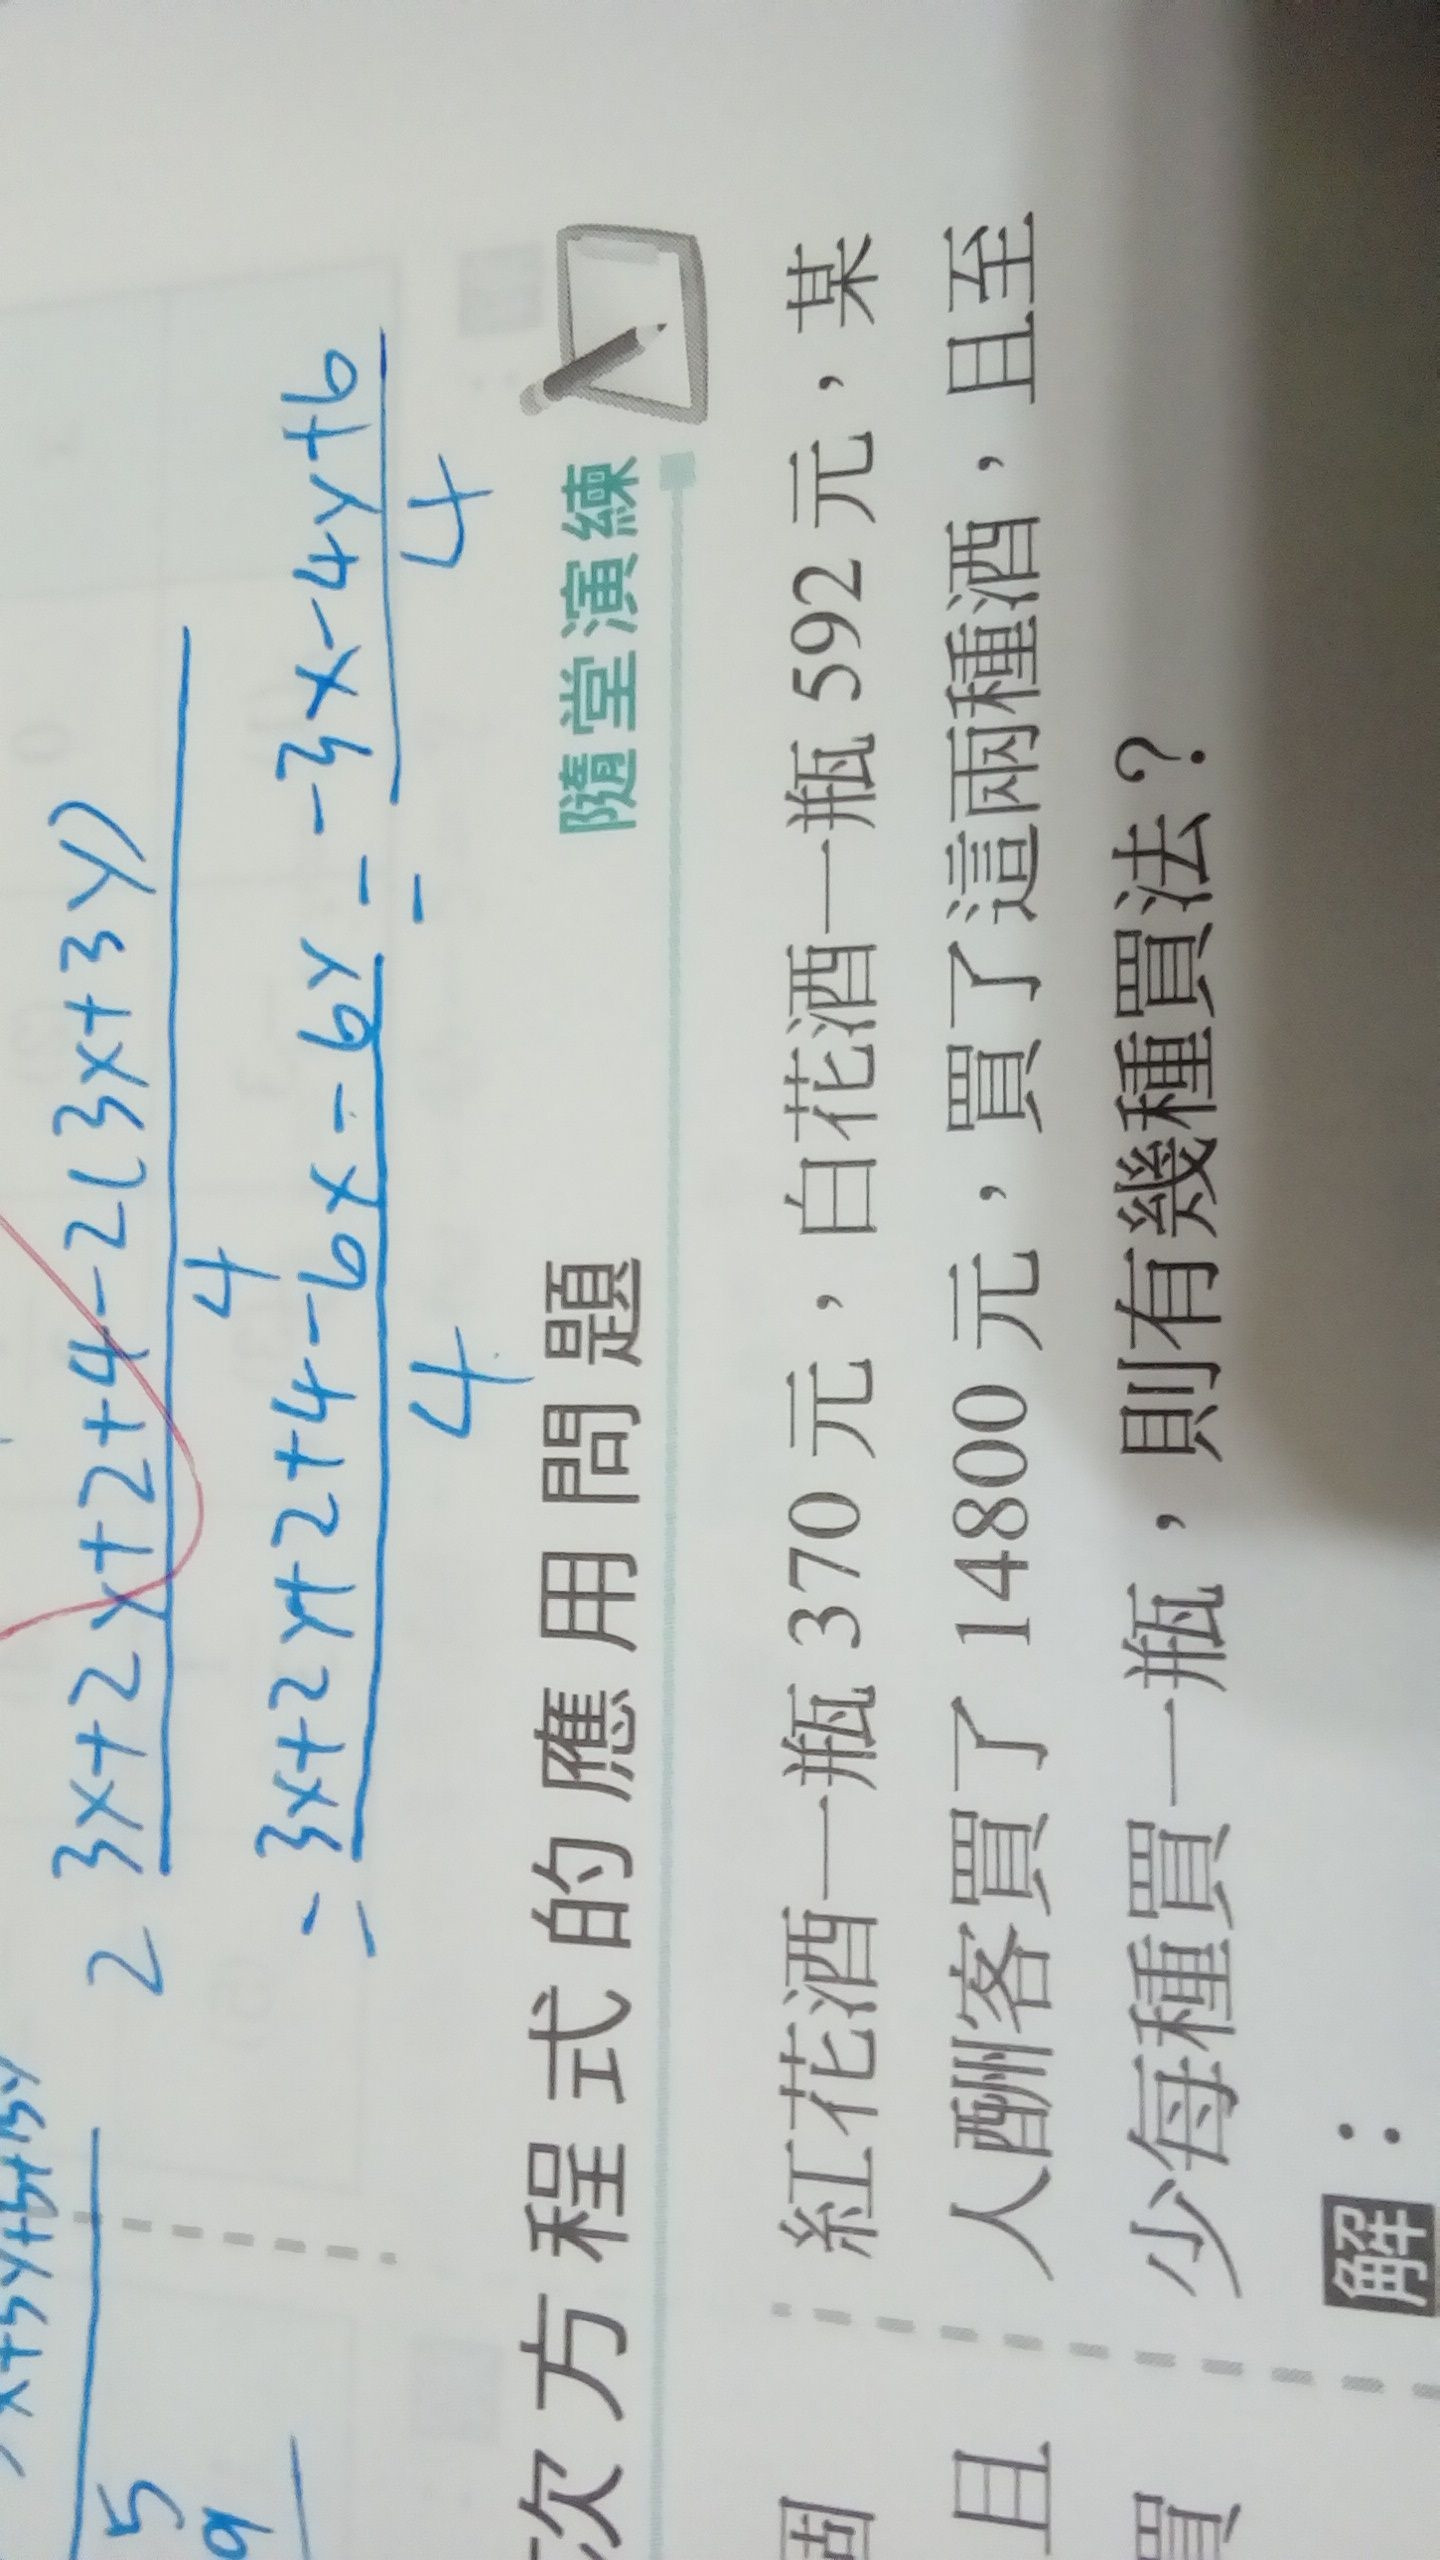 x+5y+5+15y
5
9
2 3x+2y+2+4-2(3x+3y)
4
= 3x+2y+2+4-6x-6y = -3x-4y+6
4 4
次方程式的應用問題 隨堂演練
紅花酒一瓶 370 元，白花酒一瓶 592 元，某
人酬客買了 14800 元，買了這兩種酒，且至
少每種買一瓶，則有幾種買法？
解：
且
買